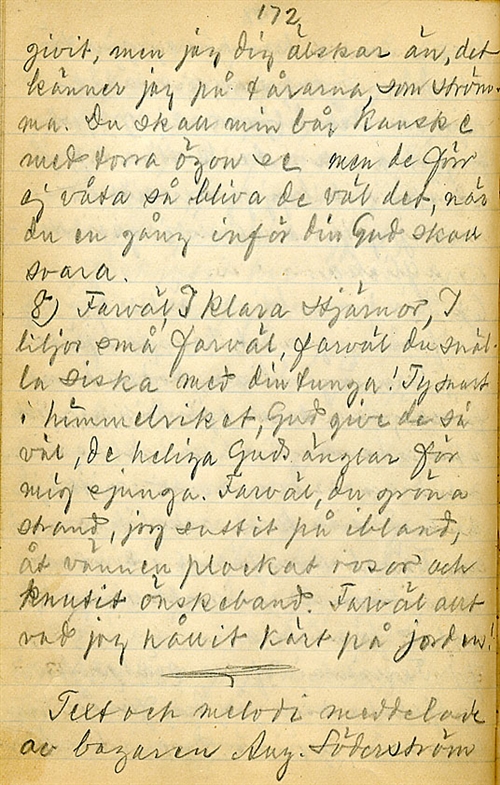 172
givit, men jag dig älskar än, det
känner jag på tårarna, som ström-
ma. Du skall min bår kanske
med torra ögon se men de förr
ej våta så bliva de väl det, när
du en gång inför din Gud skall
svara.
8) Farväl, I klara stjärnor, I
liljor små farväl, farväl du snäl-
la siska med din tunga! Ty snart
i himmelriket, Gud give de så
väl, de heliga Guds änglar för
mig sjunga. Farväl, du gröna
strand, jag suttit på ibland,
åt vännen plockat rosor och
knutit önskeband. Farväl allt
vad jag hållit kärt på jorden!
Text och melodi meddelade
av bagaren Aug. Söderström